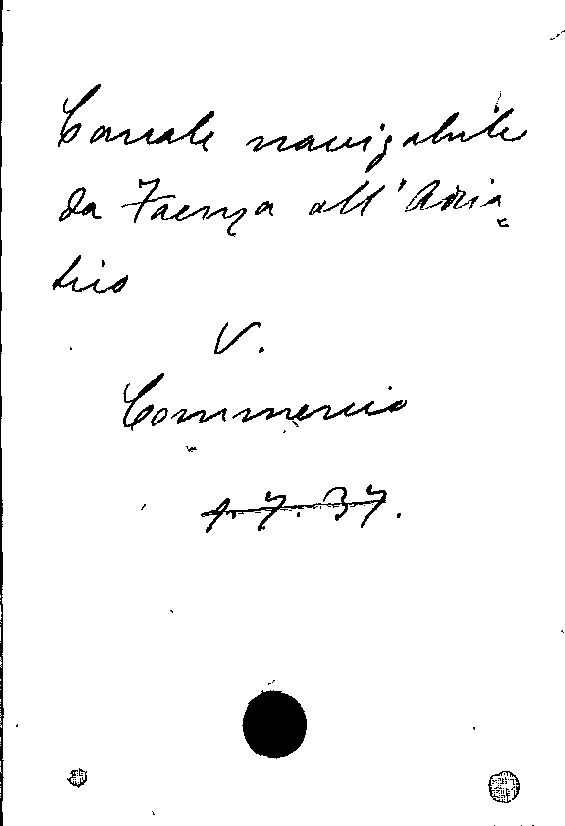 Canale navigabile
da Faenza all'Adria-
tico
V.
Commercio
1.7.37.